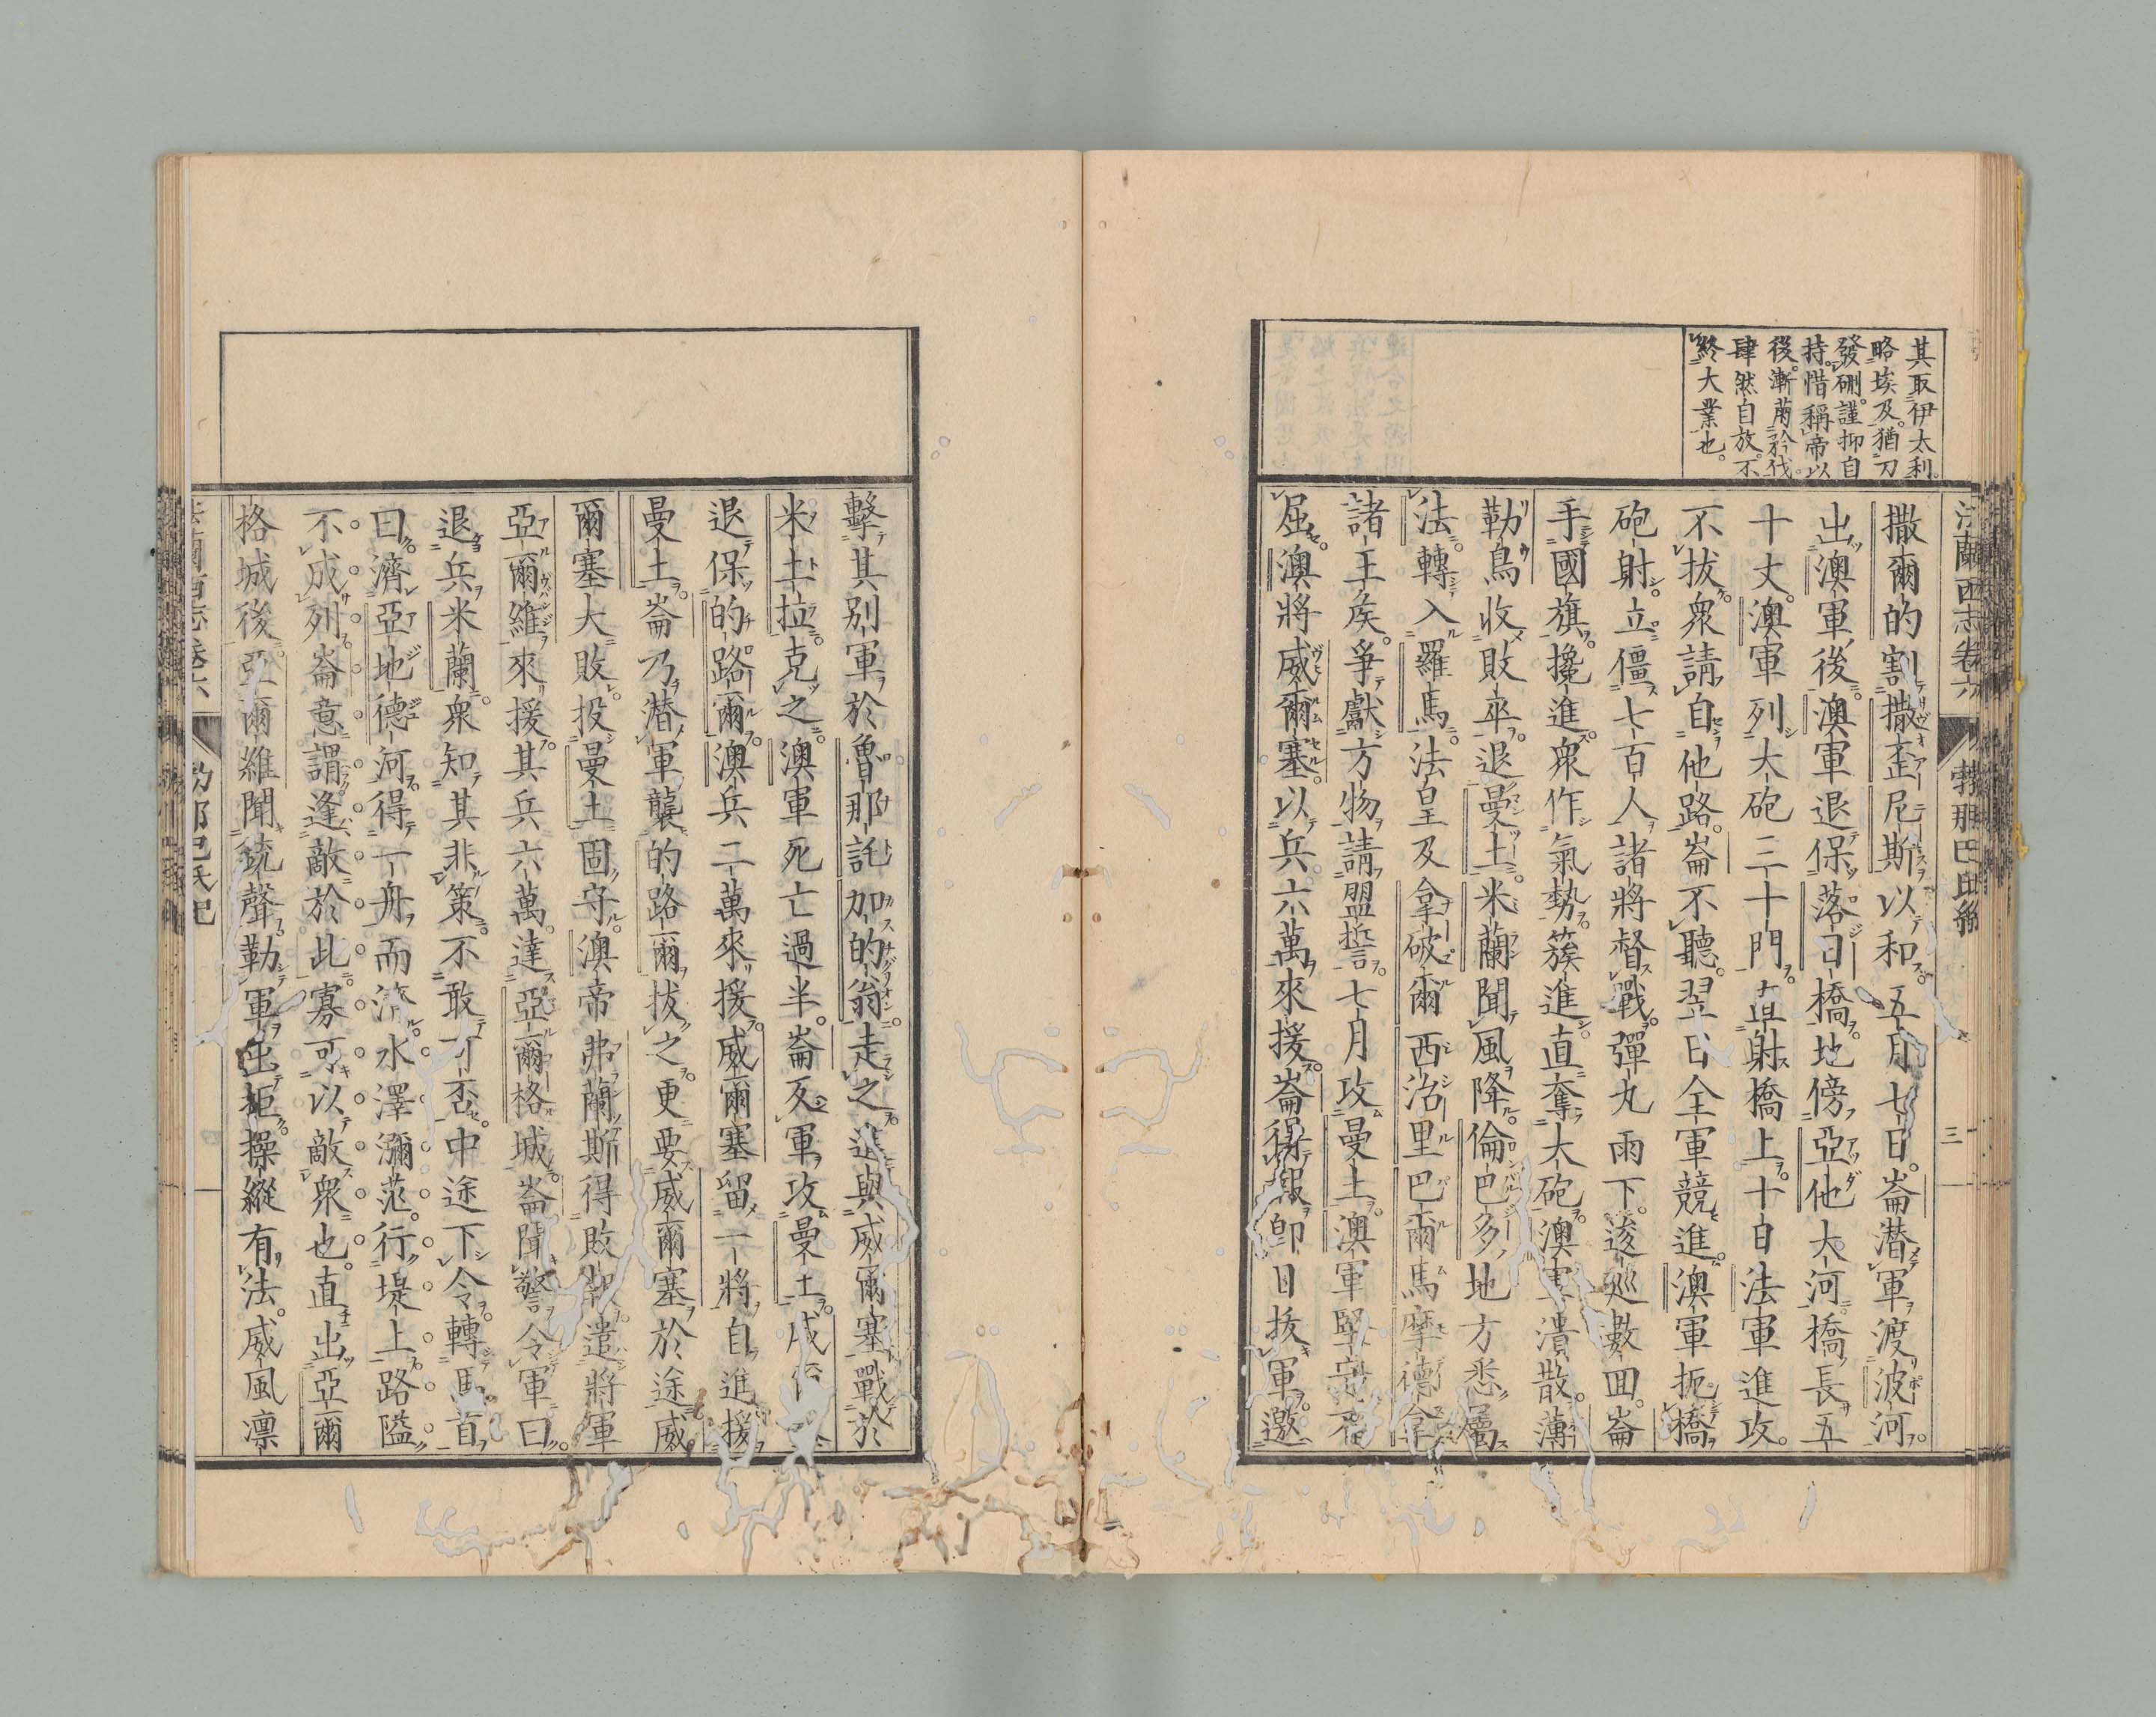 法蘭西志卷六
勃那巴氏紀
三
其取伊太利。
略埃及。猶刀
發硎。謹抑自
持。惜稱帝以
後。漸萠矜伐。
肆然自放。不
終大業也。
撒爾的割撒歪尼斯以和。五月七日。崙潜軍渡波河。
出澳軍後。澳軍退保落日橋。地傍亞他大河。橋長五
十丈。澳軍列大砲三十門。直射橋上。十日法軍進攻。
不拔。衆請自他路。崙不聽。翌日全軍競進。澳軍扼橋
砲射。立僵七百人。諸將督戰。彈丸雨下。逡巡數回。崙
手國旗。攙進。衆作氣勢。簇進。直奪大砲。澳軍潰散。薄
勒烏收敗卒。退曼土。米蘭聞風降。倫巴多地方悉屬
法。轉入羅馬。法皇及拿破爾西治里巴爾馬摩德拿
諸王矦。爭獻方物。請盟誓。七月攻曼土。澳軍堅守不
屈。澳將威爾塞。以兵六萬來援。崙得報。卽日拔軍。邀
擊其別軍於魯那託加的翁。走之。進與威爾塞戰於
米土拉。克之。澳軍死亡過半。崙反軍攻曼土。
退保的路爾。澳兵二萬來援。威爾塞留一將。自進援
曼土。崙乃潜軍襲的路爾。拔之。更要威爾塞於途。威
爾塞大敗。投曼土固守。澳帝弗蘭斯得敗報。遣將軍
亞爾維來援。其兵六萬。達亞爾格城。崙聞警。令軍曰。
退兵米蘭。衆知其非策。不敢可否。中途下令。轉馬首
曰。濟亞地德河。得一舟而濟。水澤瀰茫。行堤上。路隘
不成列。崙意謂。逢敵於此。寡可以敵衆也。直出亞爾
格城後。亞爾維聞銃聲。勒軍出拒。操縱有法。威風凛
法蘭西志卷六
勃那巴氏紀